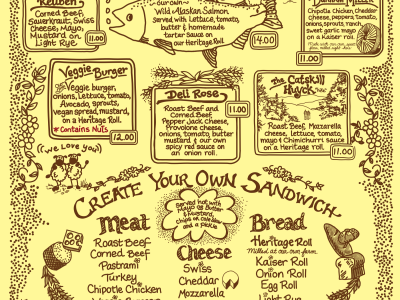 Reuben
Corned Beef,
Sauerkraut, Swiss
cheese, Mayo,
Mustard on
Light Rye
11.00
our own
Wild Alaskan Salmon
Served with Lettuce, tomato,
butter & homemade
tartar Sauce on
our Heritage Roll
14.00
Chipotle Chicken, Cheddar
cheese, peppers, tomato,
onions, sprouts, ranch,
sweet garlic mayo
on a Kaiser roll
11.00
Veggie Burger
Veggie burger,
onions, Lettuce, tomato,
Avocado, sprouts,
vegan spread, mustard,
on a Heritage Roll.
* Contains Nuts
12.00
Dell Rose
11.00
Roast Beef and
Corned Beef,
Pepper Jack Cheese,
Provolone cheese,
onions, tomato, butter
mustard & our own
spicy red sauce on
an onion roll.
The Catskill
Hiyck
Roast Beef, Mozzarella
cheese, lettuce, tomato,
mayo & Chimichurri sauce
on a Heritage roll.
11.00
(we love you)
Create Your Own Sandwich
Served hot with
Mayo or Butter
& Mustard,
chips or cole slaw
and a pickle
Meat
Roast Beef
Corned Beef
Pastrami
Turkey
Chipotle Chicken
Cheese
Swiss
Cheddar
Mozzarella
Bread
Heritage Roll
Milled at our own farm
Kaiser Roll
Onion Roll
Egg Roll
Light Rye